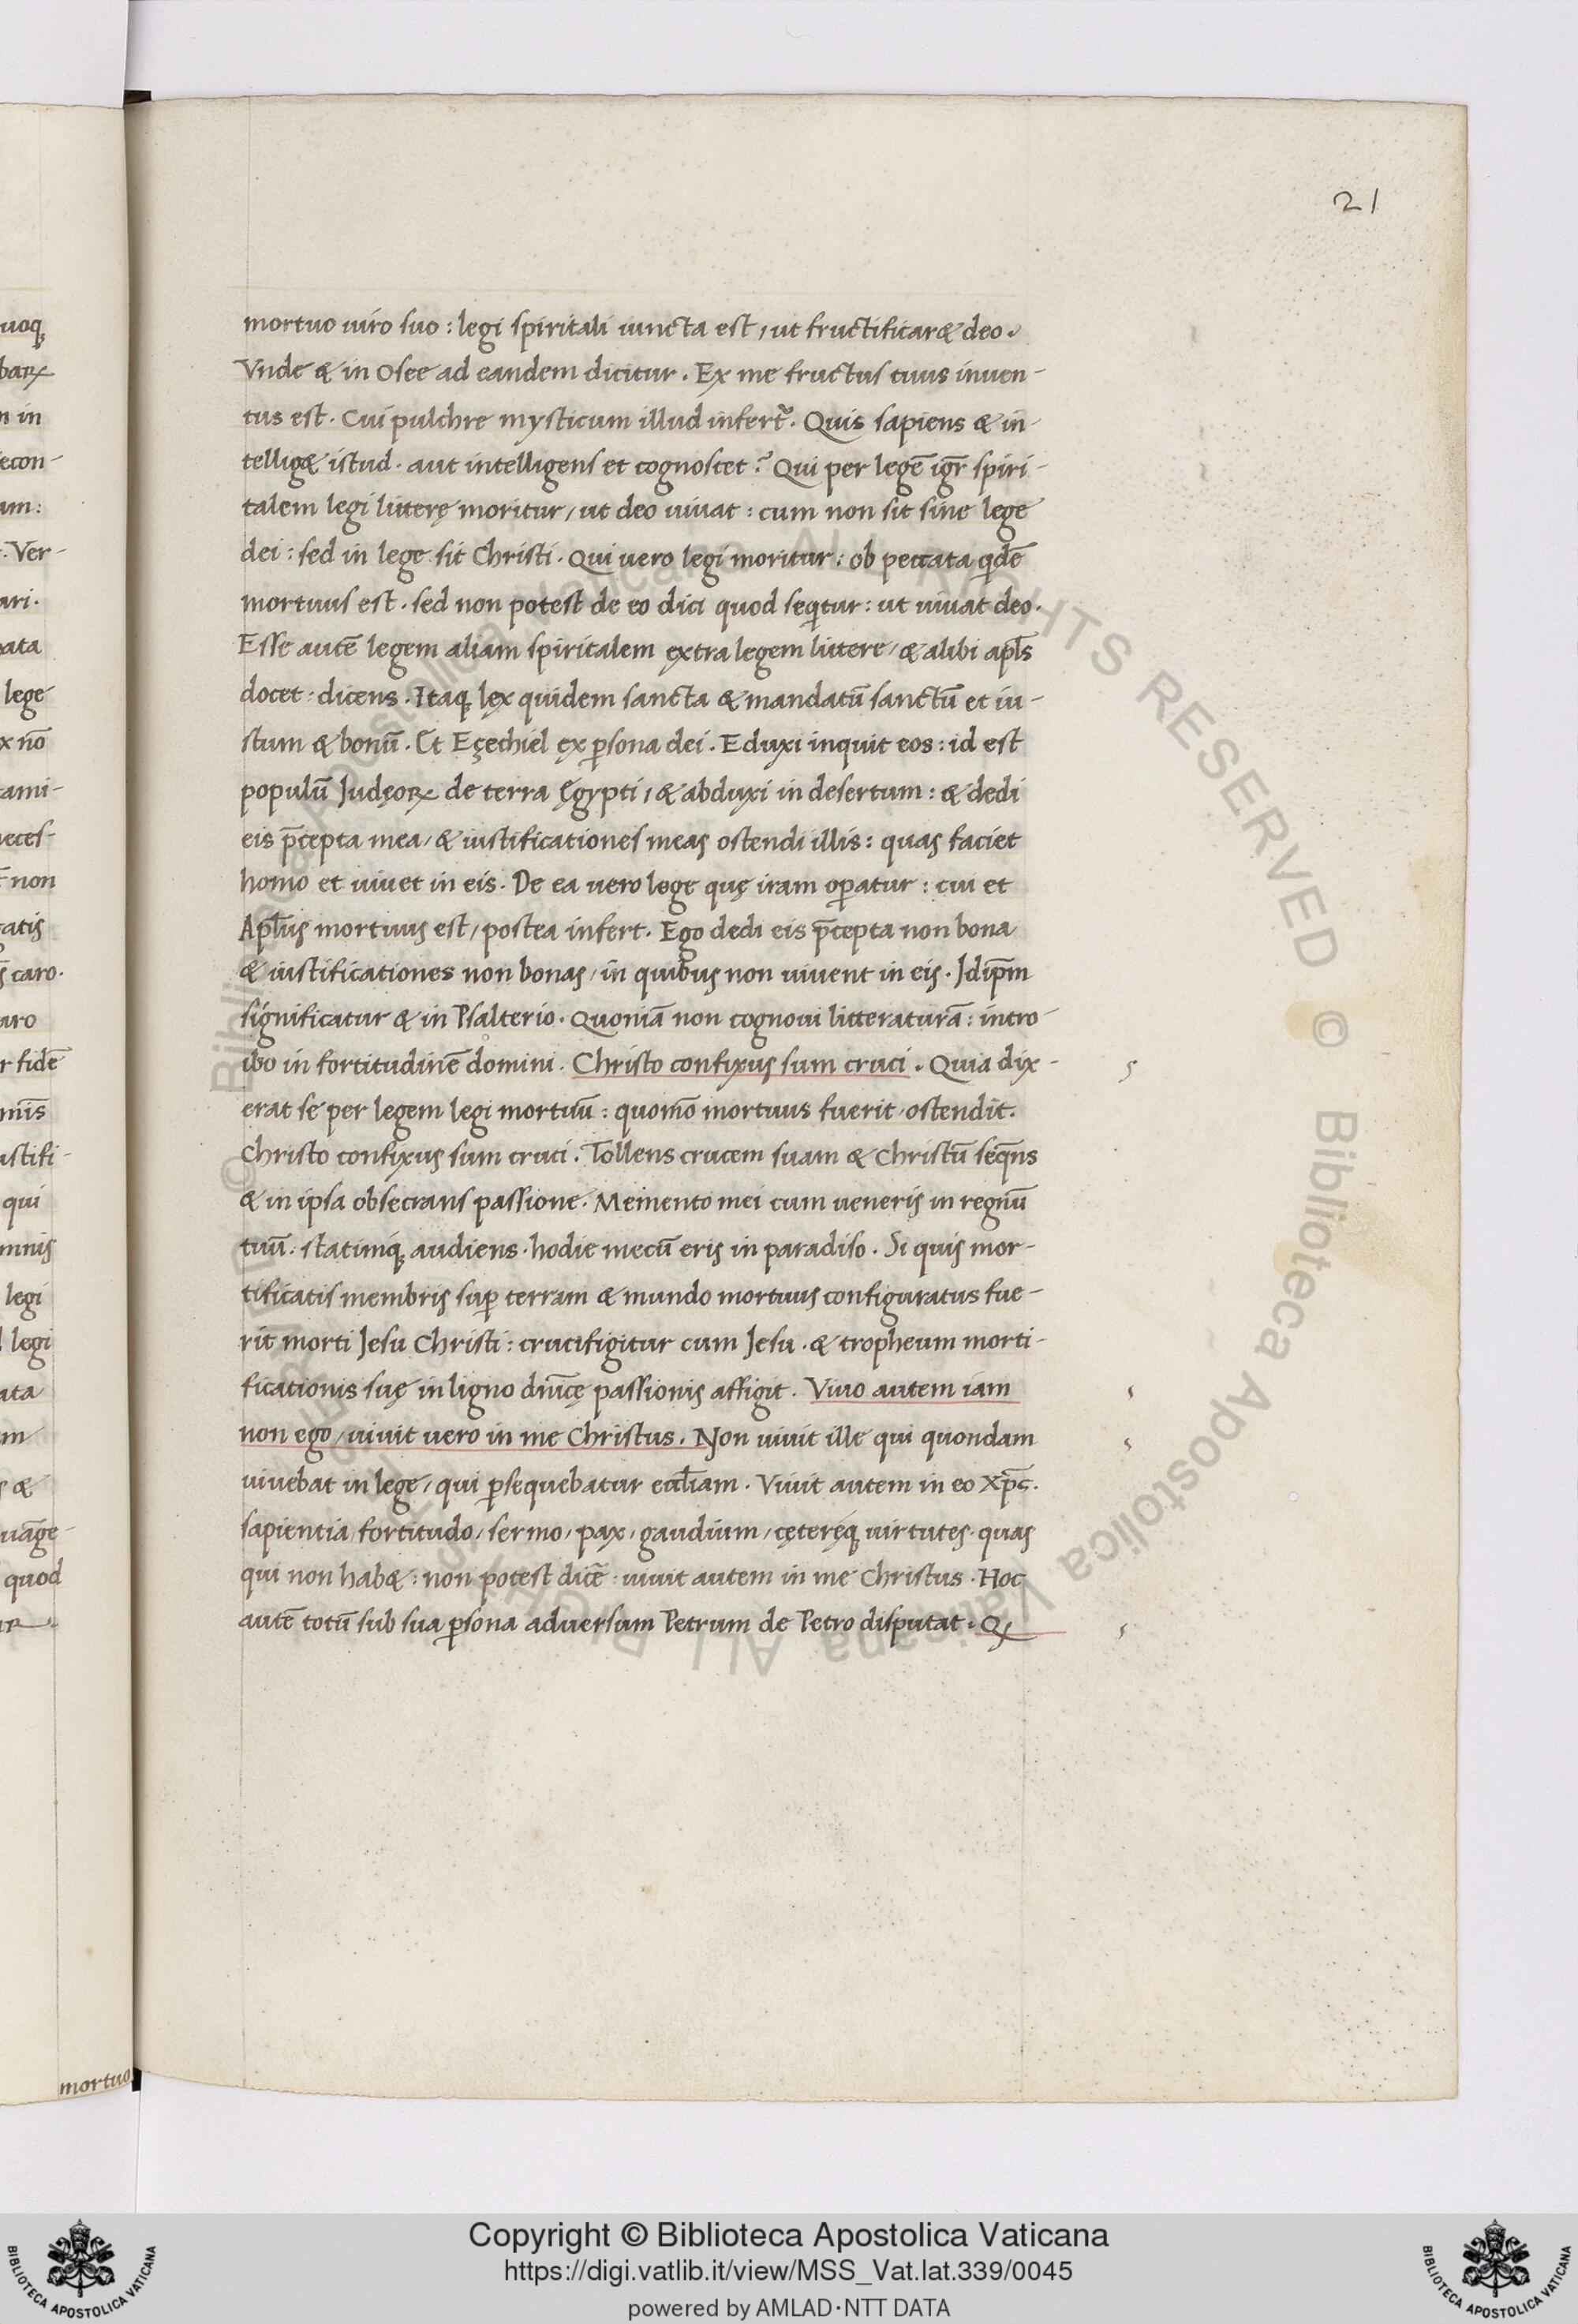 21
mortuo uiro suo : legi spiritali iuncta est, ut fructificar& deo.
Vnde & in Osee ad eandem dicitur. Ex me fructus tuus inuen-
tus est. Cui pulchre mysticum illud infert᷑. Quis sapiens & in-
tellig& istud. aut intelligens et cognoscet? Qui per legē igr̄ spiri-
talem legi litterę moritur, ut deo uiuat : cum non sit sine lege
dei : sed in lege sit Christi. Qui uero legi moritur : ob peccata qdē
mortuus est. sed non potest de eo dici quod seqtur : ut uiuat deo.
Esse autē legem aliam spiritalem extra legem littere, & alibi apls̄
docet : dicens. Itaq; lex quidem sancta & mandatū sanctū et iu-
stum & bonū. Et Ezechiel ex ꝑsona dei. Eduxi inquit eos : id est
populū Judęoꝝ de terra Ęgypti, & abduxi in desertum : & dedi
eis p̄cepta mea, & iustificationes meas ostendi illis : quas faciet
homo et uiuet in eis. De ea uero lege quę iram oꝑatur : cui et
Apl̄us mortuus est, postea infert. Ego dedi eis p̄cepta non bona
& iustificationes non bonas, in quibus non uiuent in eis. Jdip̄m
significatur & in Psalterio. Quoniā non cognoui litteraturā : intro-
ibo in fortitudinē domini. Christo confixus sum cruci. Quia dix-
erat se per legem legi mortuū : quomō mortuus fuerit, ostendit.
Christo confixus sum cruci. Tollens crucem suam & Christū seq̄ns
& in ipsa obsecrans passione. Memento mei cum ueneris in regnū
tuū : statimq; audiens. hodie mecū eris in paradiso. Si quis mor-
tificatis membris suꝑ terram & mundo mortuus configuratus fue-
rit morti Jesu Christi : crucifigitur cum Jesu. & tropheum morti-
ficationis suę in ligno dn̄icę passionis affigit. Viuo autem iam
non ego, uiuit uero in me Christus. Non uiuit ille qui quondam
uiuebat in lege, qui ꝑsequebatur eccl̄iam. Viuit autem in eo Xp̄s.
sapientia, fortitudo, sermo, pax, gaudium, cęteręq; uirtutes. quas
qui non hab& : non potest dicē : uiuit autem in me Christus. Hoc
autē totū sub sua ꝑsona aduersum Petrum de Petro disputat. Qꝫ
mortuo
Copyright © Biblioteca Apostolica Vaticana
https://digi.vatlib.it/view/MSS_Vat.lat.339/0045
powered by AMLAD·NTT DATA
BIBLIOTECA APOSTOLICA VATICANA
BIBLIOTECA APOSTOLICA VATICANA
© Biblioteca Apostolica Vaticana ALL RIGHTS RESERVED
© Biblioteca Apostolica Vaticana ALL RIGHTS RESERVED